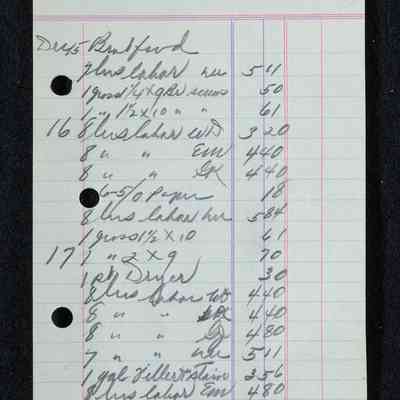 Dec 15 Bradford
7 hrs labor nu 5 11
1 gross 1/4 x 9 Br screws 50
1 " 1 1/2 x 10 " " 61
16 8 hrs labor WD 3 20
8 " " EM 4 40
8 " " 4 40
6-5/0 Paper 18
8 hrs labor 5 84
1 gross 1 1/2 x 10 61
17 1 " 2 x 9 70
1 pt Dryer 30
8 hrs labor 4 40
8 " " 4 40
8 " " 4 80
7 " " nu 5 11
1 gal Filler & Stain 3 56
8 hrs labor EM 4 80